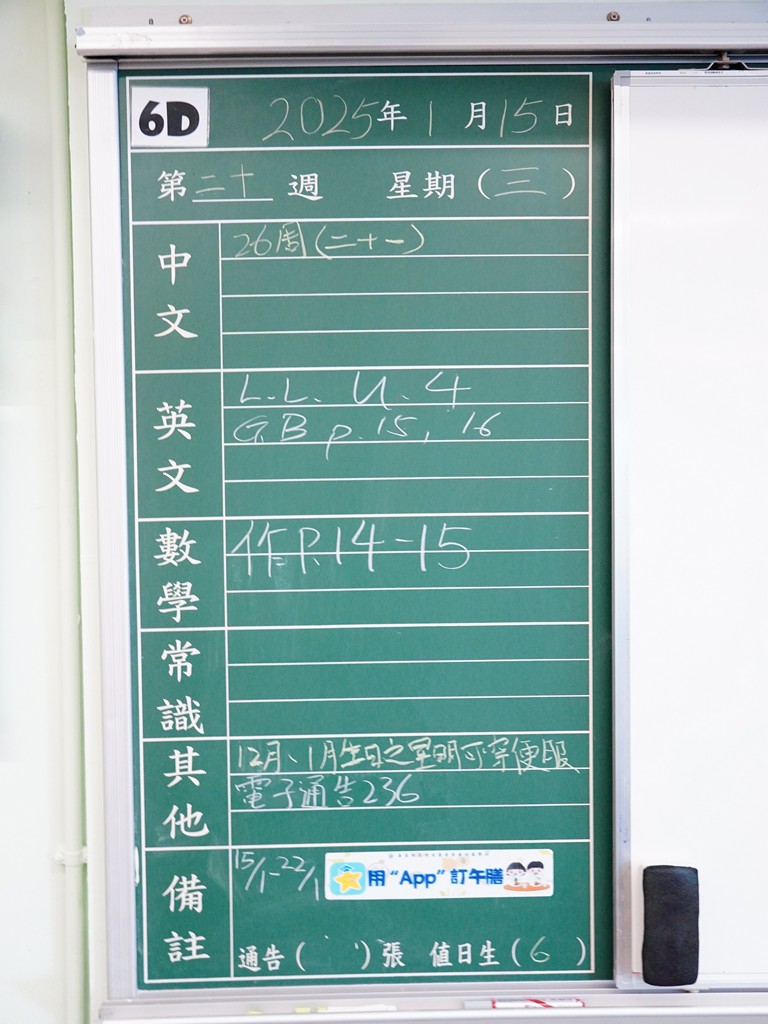 6D 2025年1月15日
第二十週 星期(三)
中文
26周(二十一)
英文
L.L. U.4
G.B p.15, 16
數學
作P.14-15
常識
其他
12月、1月生日之星明可穿便服
電子通告236
備註
15/1-22/1
用"App"訂午膳
通告( )張 值日生(6)